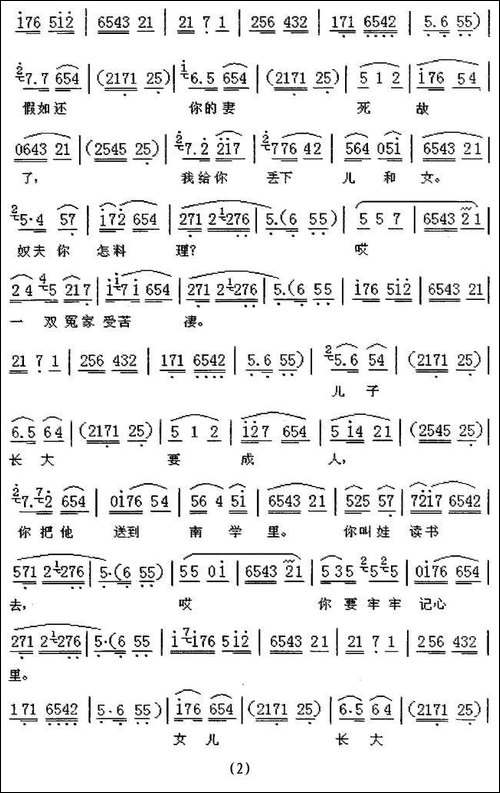 i̇76 5i̇2̇ | 6543 21 | 21 7 1 | 256 432 | 171 6542 | 5. 6 55) |
2̇7.7 654 | (2171 25) | i̇6.5 654 | (2171 25) | 5 1 2 | i̇76 5 4 |
假如还 你的妻 死 故
0643 21 | (2545 25) | 2̇7.2̇ 2̇i̇7 | 2̇776 42 | 564 05i̇ | 6543 2 1 |
了, 我给你 丢下 儿 和 女。
2̇5·4 57 | i̇72̇ 654 | 271 21276 | 5.(6 55) | 5 5 7 | 6543 21 |
奴夫你 怎料 理? 哎
2 4 45 217 | i̇i̇7i̇ 654 | 271 21276 | 5.(6 55 | i̇76 5i̇2̇ | 6543 21 |
一 双冤家 受苦 凄。
21 7 1 | 256 432 | 171 6542 | 5.6 55) | 2̇5.6 54 | (2171 25) |
儿 子
6.5 6 4 | (2171 25) | 5 1 2 | i̇2̇7 654 | 5 i̇4 21 | (2545 25) |
长 大 要 成 人,
2̇7.72̇ 654 | 0i̇76 54 | 56 4 5i̇ | 6543 21 | 525 57 | 72̇i̇7 6542 |
你 把他 送到 南 学 里。 你叫娃 读书
571 21276 | 5·(6 55) | 55 0i̇ | 6543 21 | 535 2525 | 0i̇76 654 |
去, 哎 你 要 牢牢 记心
271 21276 | 5·(6 55 | i̇7i̇76 5i̇2̇ | 6543 21 | 21 7 1 | 256 432 |
里。
171 6542 | 5·6 55) | i̇76 654 | (2171 25) | 6·5 6 4 | (2171 25) |
女 儿 长 大
(2)